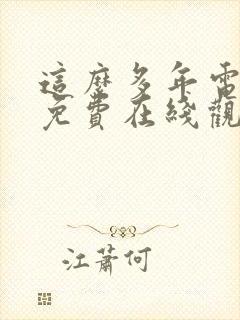 這麼多年電
免費在綫觀
江蕭何